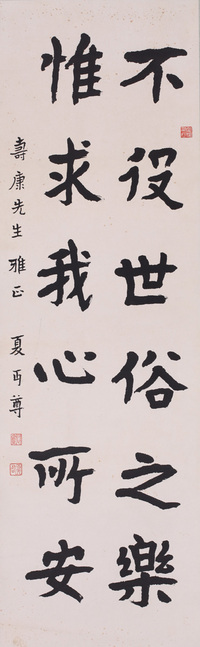 不役世俗之樂
惟求我心所安
壽康先生雅正 夏丏尊